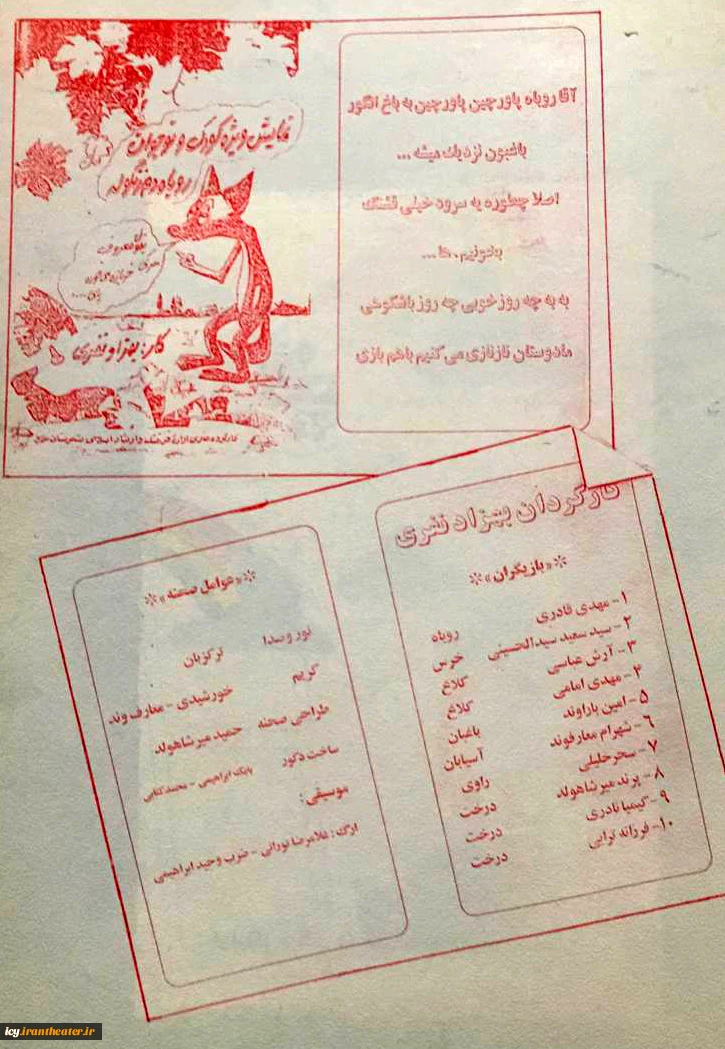 آقا روباه پاورچین پاورچین به باغ انگور
باغبون نزدیک میشه ...
اصلا چطوره یه سرود خیلی قشنگ
بخونیم . ها ...
به به چه روز خوبی چه روز باشکوهی
مادوستان نازنازی می کنیم باهم بازی
نمایش ویژه کودک و نوجوان
روباه دم زنگوله
کار: بهزاد نفری
کارگردان بهزاد نفری
«بازیگران»
۱- مهدی قادری روباه
۲- سید سعید سیدالحسینی خرس
۳- آرش عباسی کلاغ
۴- مهدی امامی کلاغ
۵- امین یاراوند باغبان
۶- شهرام معارفوند آسیابان
۷- سحر خلیلی راوی
۸- پرند میرشاهولد درخت
۹- کیمیا نادری درخت
۱۰- فرزانه ترابی درخت
«عوامل صحنه»
نور و صدا ترکزبان
گریم خورشیدی - معارف وند
طراحی صحنه حمید میرشاهولد
ساخت دکور بابک ابراهیمی - محمد کتابی
موسیقی:
ارگ: غلامرضا نورائی - ضرب وحید ابراهیمی
icy.irantheater.ir